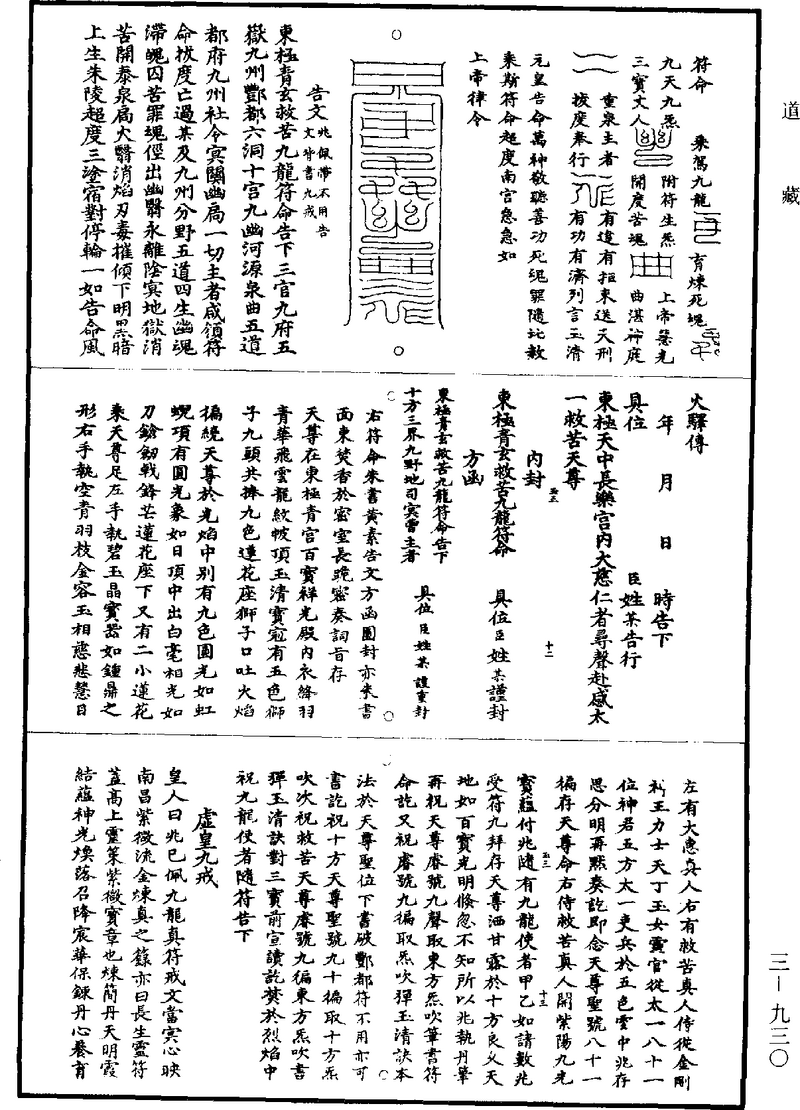 道藏
符命　乘駕九龍　育煉死魂
九天九炁　附符生炁　上帝慈光
三寶丈人　開度苦魂　曲湛神庭
重泉主者　有違有拒束送天刑
拔度奉行　有功有濟列言玉清
元皇告命萬神敬聽善功死魂罪隨訖教
乘斯符命超度南宮急急如
上帝律令
告文兆佩帶不用告文背書九戒
東極青玄救苦九龍符命告下三官九府五
嶽九州酆都六洞十宮九幽河源泉曲五道
都府九州社令冥關幽局一切主者咸領符
命拔度亡過某及九州分野五道四生幽魂
滯魄囚苦罪魂徑出幽翳永離陰冥地獄消
苦開泰泉扃火翳消焰刃毒摧傾下明黑暗
上生朱陵超度三塗宿對停輪一如告命風
火驛傳
年　月　日　時告下
具位　臣姓某告行
東極天中長樂宮內大慈仁者尋聲赴感太
一救苦天尊
內封
東極青玄救苦九龍符命　具位臣姓某謹封
方函
東極青玄救苦九龍符命告下
十方三界九野地司冥曹主者　具位臣姓某謹重封
右符命朱書黃素告文方函圓封亦朱書
面東焚香於密室長跪密奏詞旨存
天尊在東極青宮百寶祥光殿內衣絳羽
青華飛雲龍紋帔頂玉清寶冠有五色獅
子九頭共捧九色蓮花座獅子口吐火焰
徧繞天尊於光焰中別有九色圓光如虹
蜺項有圓光象如日頂中出白毫相光如
刀鎗劒戟鋒芒蓮花座下又有二小蓮花
乘天尊足左手執碧玉晶寶器如鍾鼎之
形右手執空青羽枝金容玉相慈悲慧日
左有大惠真人右有救苦真人侍從金剛
神王力士天丁玉女靈官從太一八十一
位神君五方太一吏兵於五色雲中兆存
思分明再默奏訖即念天尊聖號八十一
徧存天尊命右侍救苦真人開紫陽九光
寶蘊付兆隨有九龍使者甲乙如請數兆
受符九拜存天尊洒甘露於十方良久天
地如百寶光明倏忽不知所以兆執丹筆
再祝天尊睿號九聲取東方炁吹筆書符
命訖又祝睿號九徧取炁吹彈玉清訣本
法於天尊聖位下書破酆都符不用亦可
書訖祝十方天尊聖號九十徧取十方炁
吹次祝救苦天尊睿號九徧東方炁吹書
彈玉清訣對三寶前宣讀訖焚於烈焰中
祝九龍使者隨符告下
虛皇九戒
皇人曰兆已佩九龍真符戒文當冥心映
南昌紫微流金煉真之籙亦曰長生靈符
蓋高上靈策紫微寶章也煉簡丹天明霞
結蘊神光煥落召降宸華保鍊丹心養育
三－九三〇